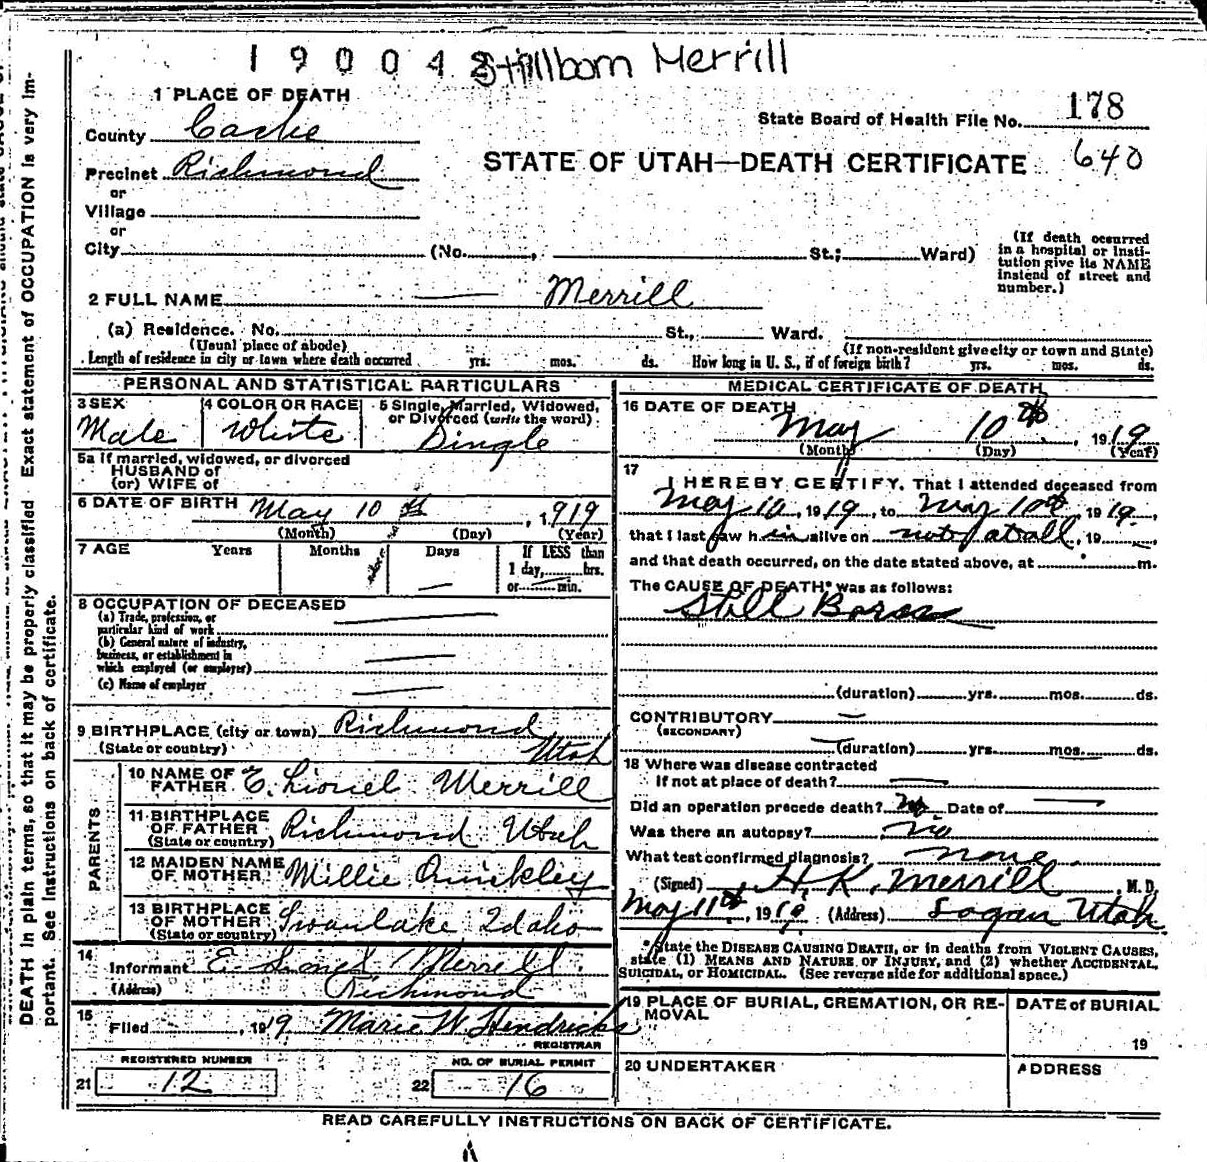 190042 Stillborn Merrill
1 PLACE OF DEATH
County Cache
State Board of Health File No. 178
640
Precinct Richmond
STATE OF UTAH—DEATH CERTIFICATE
or
Village
or
City (No. , St.; Ward)
(If death occurred in a hospital or institution give its NAME instead of street and number.)
2 FULL NAME — Merrill
(a) Residence. No. St., Ward.
(Usual place of abode) (If non-resident give city or town and State)
Length of residence in city or town where death occurred yrs. mos. ds. How long in U. S., if of foreign birth? yrs. mos. ds.
PERSONAL AND STATISTICAL PARTICULARS
3 SEX Male
4 COLOR OR RACE White
5 Single, Married, Widowed, or Divorced (write the word) Single
5a If married, widowed, or divorced
HUSBAND of
(or) WIFE of
6 DATE OF BIRTH May 10th, 1919
(Month) (Day) (Year)
7 AGE Years Months Days If LESS than 1 day, hrs. or min.
8 OCCUPATION OF DECEASED
(a) Trade, profession, or
particular kind of work
(b) General nature of industry,
business, or establishment in
which employed (or employer)
(c) Name of employer
9 BIRTHPLACE (city or town) Richmond
(State or country) Utah
PARENTS
10 NAME OF FATHER E. Lionel Merrill
11 BIRTHPLACE OF FATHER (State or country) Richmond Utah
12 MAIDEN NAME OF MOTHER Millie Quickley
13 BIRTHPLACE OF MOTHER (State or country) Swanlake Idaho
14 Informant E. Lionel Merrill
(Address) Richmond
15 Filed , 1919 Marie W. Hendricks
REGISTRAR
REGISTERED NUMBER
21 12
NO. OF BURIAL PERMIT
22 16
MEDICAL CERTIFICATE OF DEATH
16 DATE OF DEATH
May 10th, 1919
(Month) (Day) (Year)
17 I HEREBY CERTIFY, That I attended deceased from
May 10, 1919, to May 10th, 1919,
that I last saw h im alive on not at all, 19 ,
and that death occurred, on the date stated above, at m.
The CAUSE OF DEATH* was as follows:
Still Born
(duration) yrs. mos. ds.
CONTRIBUTORY
(SECONDARY)
(duration) yrs. mos. ds.
18 Where was disease contracted
If not at place of death?
Did an operation precede death? No Date of
Was there an autopsy? no
What test confirmed diagnosis? none
(Signed) H. K. Merrill, M. D.
May 11th, 1919 (Address) Logan Utah
*State the DISEASE CAUSING DEATH, or in deaths from VIOLENT CAUSES,
state (1) MEANS AND NATURE OF INJURY, and (2) whether ACCIDENTAL,
SUICIDAL, or HOMICIDAL. (See reverse side for additional space.)
19 PLACE OF BURIAL, CREMATION, OR REMOVAL
DATE of BURIAL
19
20 UNDERTAKER
ADDRESS
READ CAREFULLY INSTRUCTIONS ON BACK OF CERTIFICATE.
DEATH in plain terms, so that it may be properly classified Exact statement of OCCUPATION is very im-
portant. See Instructions on back of certificate.